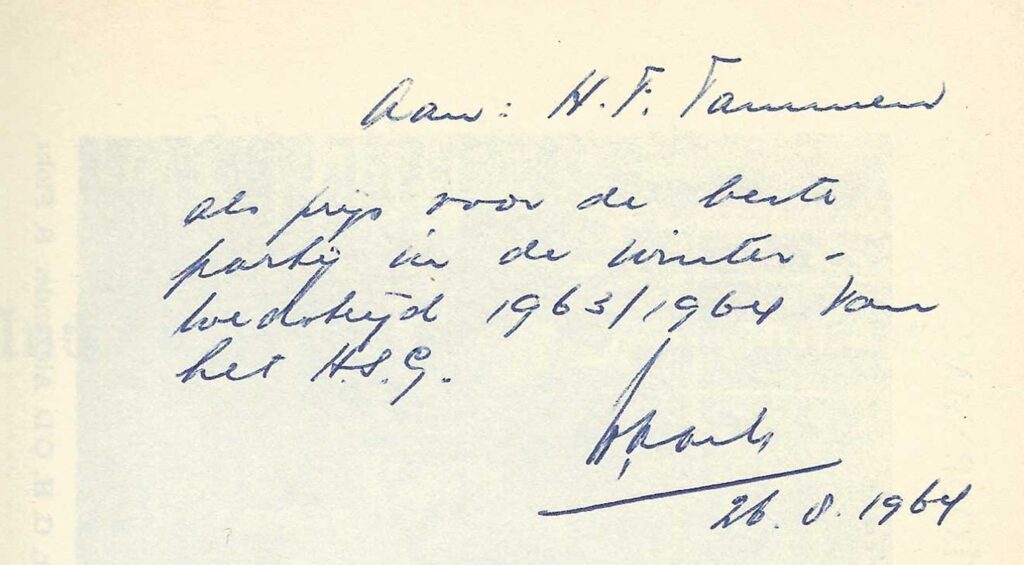 Aan: H. F. Tammen
als prijs voor de beste
partij in de winter-
wedstrijd 1963/1964 van
het H.S.G.
26.8.1964